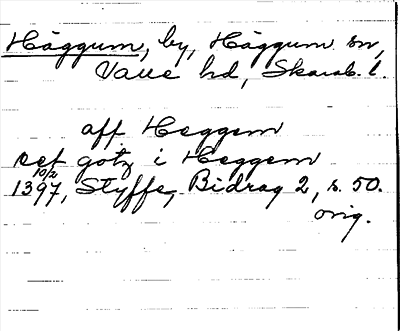 Häggum, by, Häggum sn,
Valle hd, Skarab. l.
aff Heggem
det götz i Heggem
10/2
1397, Styffe, Bidrag 2, s. 50.
orig.